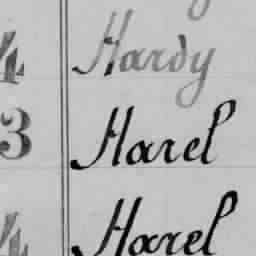 4 Hardy
3 Harel
4 Harel